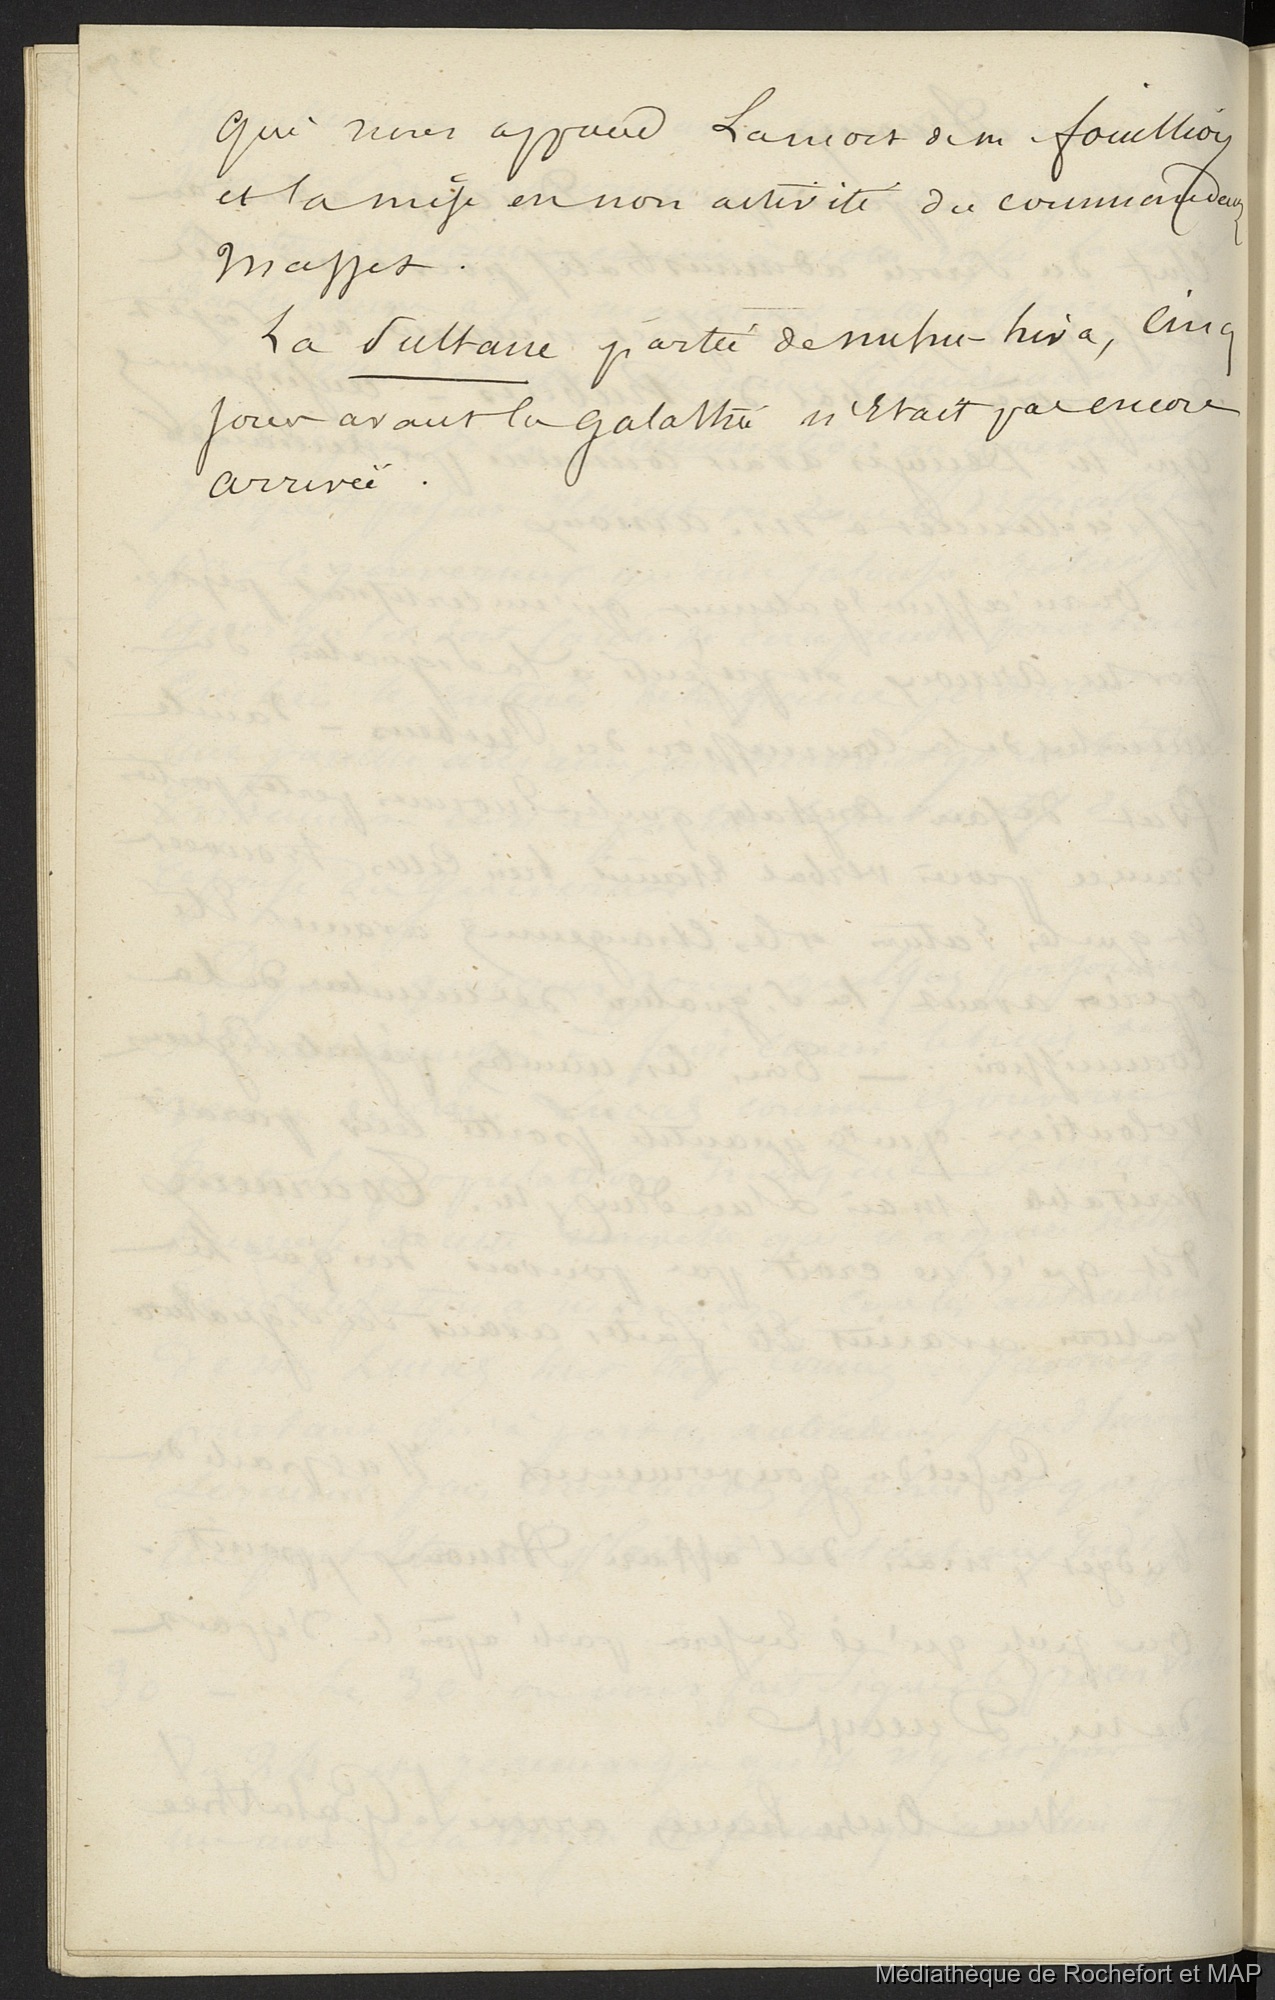 qui nous apprend La mort de m fouillioy
et la mise en non activité du commandant
Masset.
La Sultane partie de nuhu-hiva, cinq
jours avant la Galathée n'était pas encore
arrivée.
Médiathèque de Rochefort et MAP